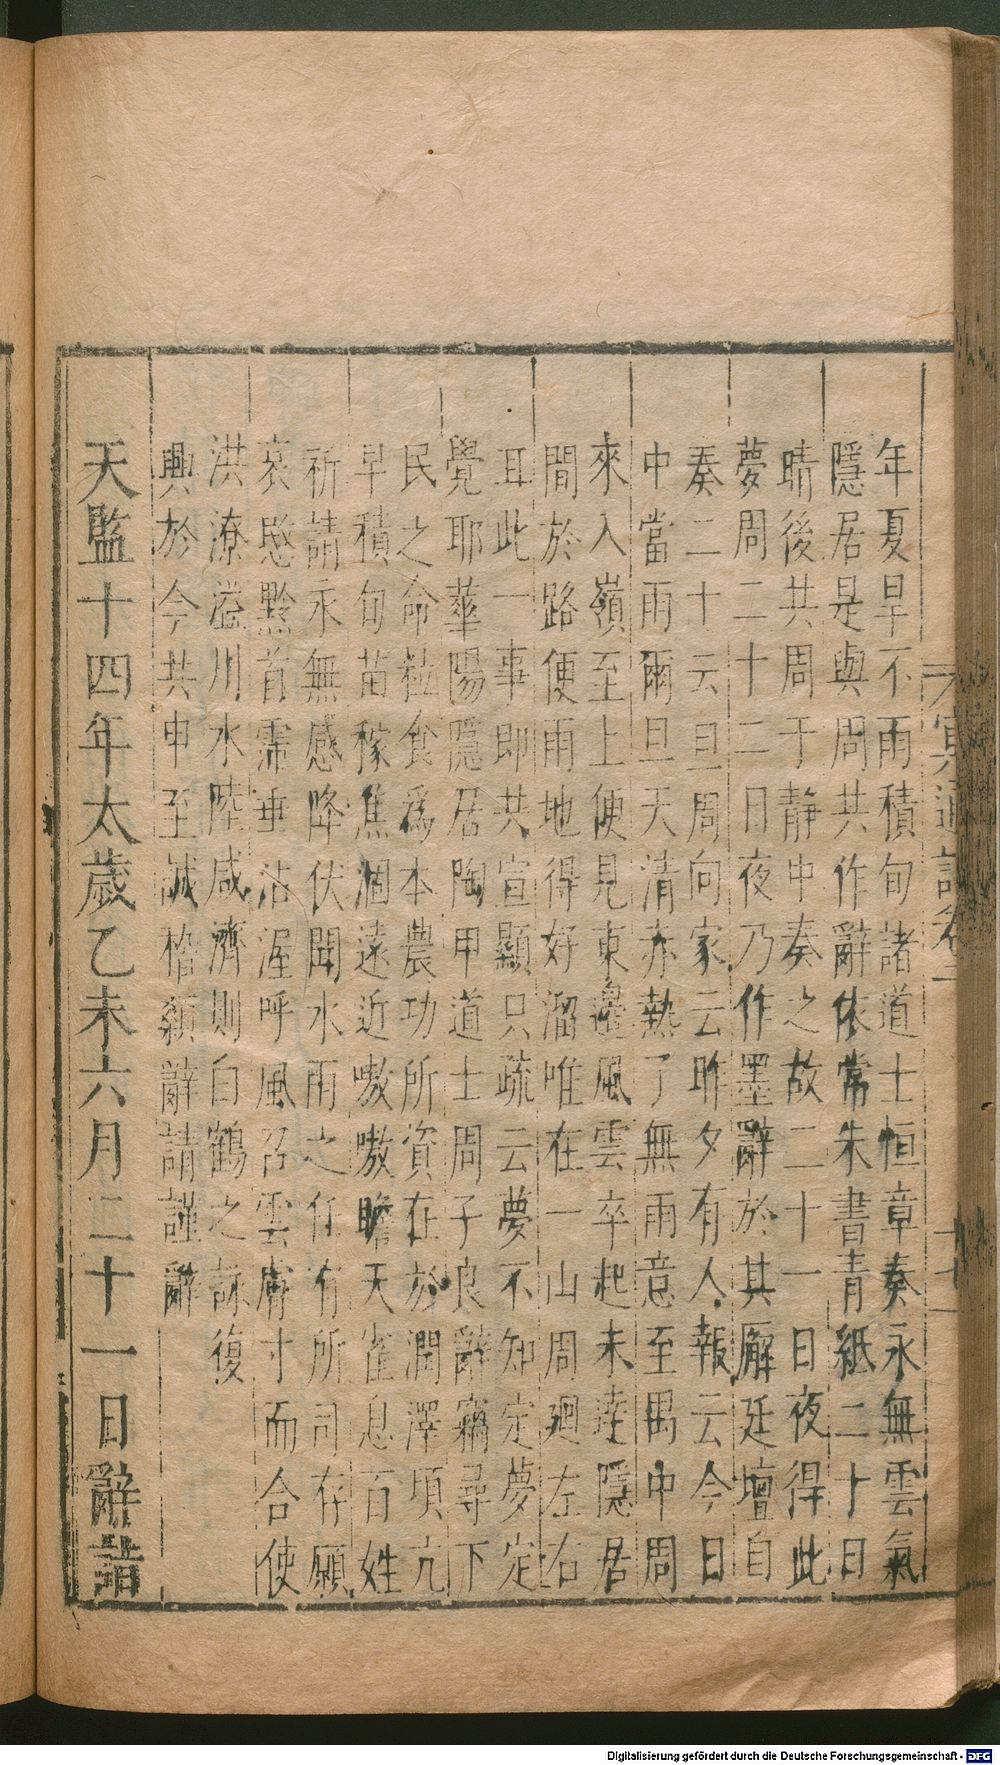 年夏旱不雨積旬諸道士恒章奏永無雲氣
隱居是與周共作辭依常朱書青紙二十日
晴後共周于静中奏之故二十一日夜得此
夢周二十二日夜乃作墨辭於其廨廷壇自
奏二十云旦周向家云昨夕有人報云今日
中當雨爾旦天清赤熱了無雨意至禺中周
來入嶺至上便見東邊風雲卒起未逹隱居
間於路便雨地得好溜唯在一山周廻左右
耳此一事即共宣顯只疏云夢不知定夢定
覺耶華陽隱居陶甲道士周子良辭竊尋下
民之命粒食爲本農功所資在於潤澤頃亢
旱積旬苗稼焦涸遠近嗷嗷瞻天雀息百姓
祈請永無感降伏聞水雨之任有所司存願
哀愍黔首霈垂沾渥呼風召雲膚寸而合使
洪潦溢川水陸咸濟則白鶴之詠復
興於今共申至誠稽顙辭請謹辭
天監十四年太歲乙未六月二十一日辭詣
冥通記卷一
十七
Digitalisierung gefördert durch die Deutsche Forschungsgemeinschaft - DFG